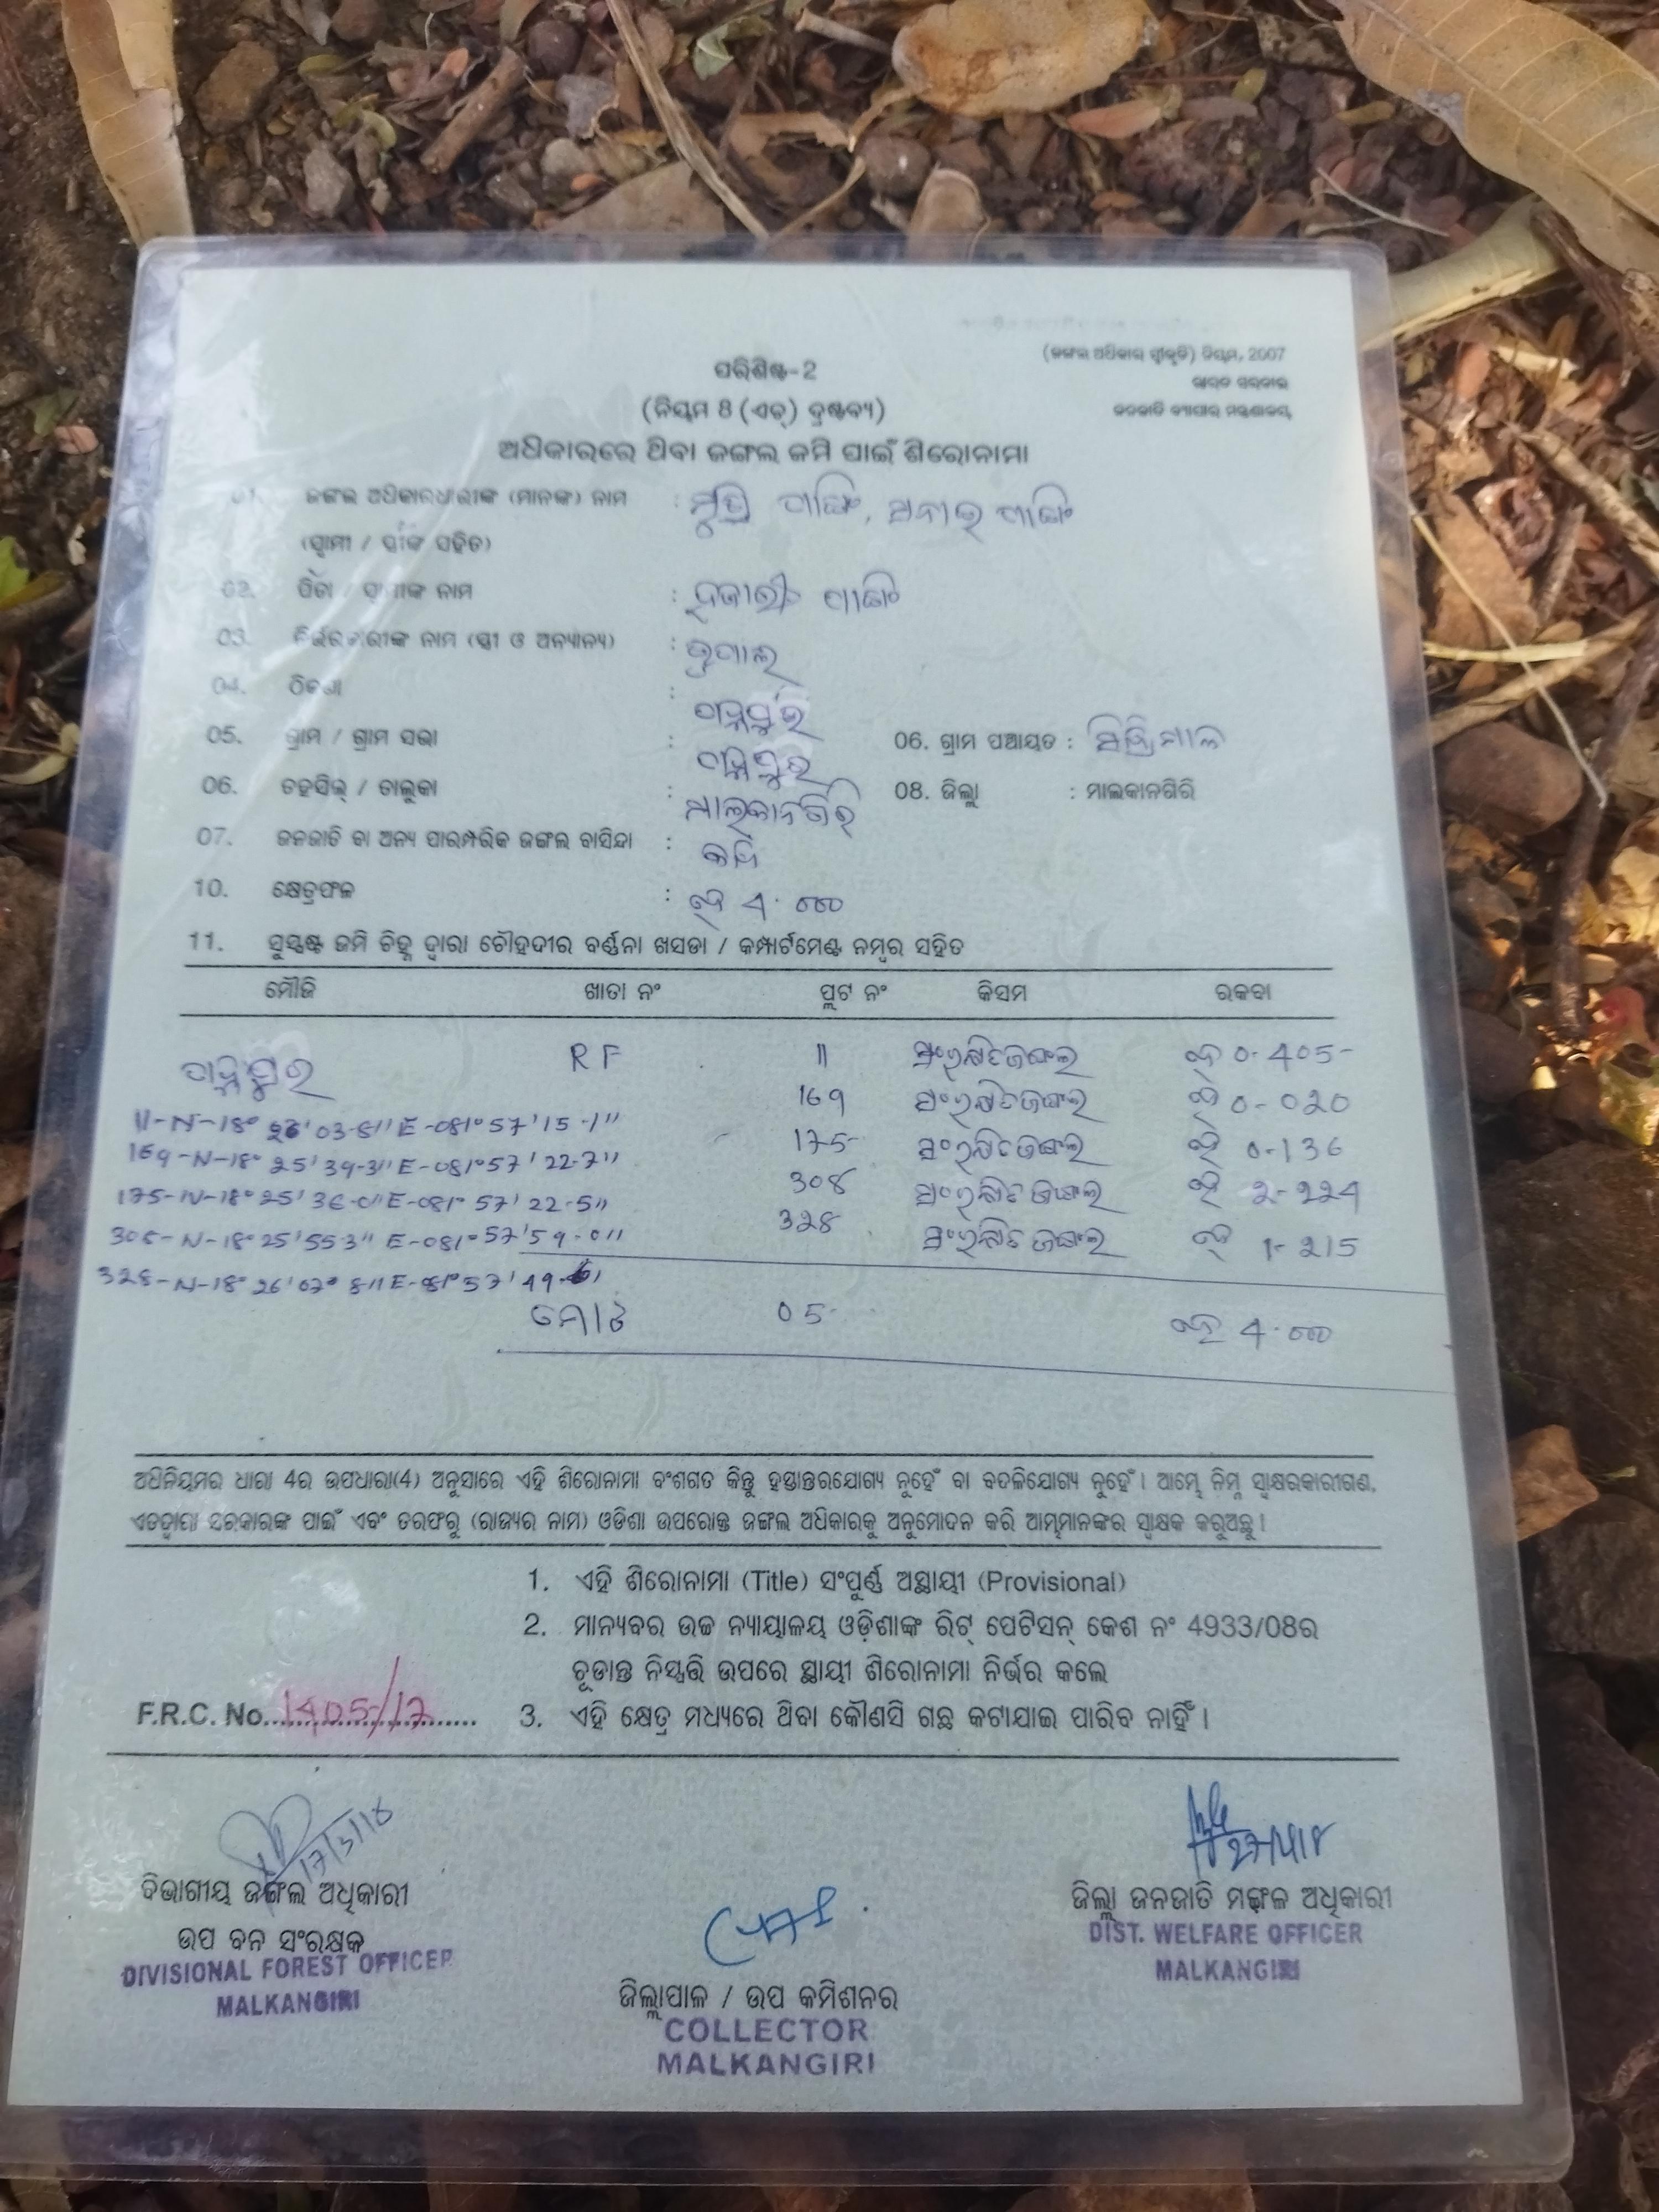 (ଜଙ୍ଗଲ ଅଧିକାର ସ୍ୱୀକୃତି) ନିୟମ, 2007
ଭାରତ ସରକାର
ଜନଜାତି ବ୍ୟାପାର ମନ୍ତ୍ରଣାଳୟ
ପରିଶିଷ୍ଟ-2
(ନିୟମ 8 (ଏଚ୍) ଦ୍ରଷ୍ଟବ୍ୟ)
ଅଧିକାରରେ ଥିବା ଜଙ୍ଗଲ ଜମି ପାଇଁ ଶିରୋନାମା
01. ଜଙ୍ଗଲ ଅଧିକାରଧାରୀଙ୍କ (ମାନଙ୍କ) ନାମ :
(ସ୍ୱାମୀ / ସ୍ତ୍ରୀଙ୍କ ସହିତ)
02. ପିତା / ସ୍ୱାମୀଙ୍କ ନାମ :
03. ନିର୍ଭରକାରୀଙ୍କ ନାମ (ସ୍ତ୍ରୀ ଓ ଅନ୍ୟାନ୍ୟ) :
04. ଠିକଣା :
05. ଗ୍ରାମ / ଗ୍ରାମ ସଭା : 06. ଗ୍ରାମ ପଞ୍ଚାୟତ :
06. ତହସିଲ୍ / ତାଲୁକା : ମାଲକାନଗିରି 08. ଜିଲ୍ଲା : ମାଲକାନଗିରି
07. ଜନଜାତି ବା ଅନ୍ୟ ପାରମ୍ପରିକ ଜଙ୍ଗଲ ବାସିନ୍ଦା :
10. କ୍ଷେତ୍ରଫଳ : 4.000
11. ସୁସ୍ପଷ୍ଟ ଜମି ଚିହ୍ନ ଦ୍ୱାରା ଚୌହଦୀର ବର୍ଣ୍ଣନା ଖସଡା / କମ୍ପାର୍ଟମେଣ୍ଟ ନମ୍ବର ସହିତ
ମୌଜି ଖାତା ନଂ ପ୍ଲଟ ନଂ କିସମ ରକବା
RF 11 ସଂରକ୍ଷିତ ଜଙ୍ଗଲ 0-405
11-N-18° 26' 03-8" E-081° 57' 15-1" 169 ସଂରକ୍ଷିତ ଜଙ୍ଗଲ 0-020
169-N-18° 25' 39-3" E-081° 57' 22-7" 175 ସଂରକ୍ଷିତ ଜଙ୍ଗଲ 0-136
175-N-18° 25' 36-0" E-081° 57' 22-5" 308 ସଂରକ୍ଷିତ ଜଙ୍ଗଲ 2-224
308-N-18° 25' 55-3" E-081° 57' 59-0" 328 ସଂରକ୍ଷିତ ଜଙ୍ଗଲ 1-215
328-N-18° 26' 07° 8" E-081° 57' 49-6"
ମୋଟ 05 4.000
ଅଧିନିୟମର ଧାରା 4ର ଉପଧାରା(4) ଅନୁସାରେ ଏହି ଶିରୋନାମା ବଂଶଗତ କିନ୍ତୁ ହସ୍ତାନ୍ତରଯୋଗ୍ୟ ନୁହେଁ ବା ବଦଳିଯୋଗ୍ୟ ନୁହେଁ । ଆମ୍ଭେ ନିମ୍ନ ସ୍ୱାକ୍ଷରକାରୀଗଣ,
ଏତଦ୍ୱାରା ସରକାରଙ୍କ ପାଇଁ ଏବଂ ତରଫରୁ (ରାଜ୍ୟର ନାମ) ଓଡିଶା ଉପରୋକ୍ତ ଜଙ୍ଗଲ ଅଧିକାରକୁ ଅନୁମୋଦନ କରି ଆମ୍ଭମାନଙ୍କର ସ୍ୱାକ୍ଷକ କରୁଅଛୁ ।
1. ଏହି ଶିରୋନାମା (Title) ସଂପୂର୍ଣ୍ଣ ଅସ୍ଥାୟୀ (Provisional)
2. ମାନ୍ୟବର ଉଚ୍ଚ ନ୍ୟାୟାଳୟ ଓଡ଼ିଶାଙ୍କ ରିଟ୍ ପେଟିସନ୍ କେଶ ନଂ 4933/08ର
ଚୂଡାନ୍ତ ନିସ୍ପତ୍ତି ଉପରେ ସ୍ଥାୟୀ ଶିରୋନାମା ନିର୍ଭର କଲେ
F.R.C. No. 1405/17 3. ଏହି କ୍ଷେତ୍ର ମଧ୍ୟରେ ଥିବା କୌଣସି ଗଛ କଟାଯାଇ ପାରିବ ନାହିଁ ।
ବିଭାଗୀୟ ଜଙ୍ଗଲ ଅଧିକାରୀ
ଉପ ବନ ସଂରକ୍ଷକ
DIVISIONAL FOREST OFFICER
MALKANGIRI
ଜିଲ୍ଲାପାଳ / ଉପ କମିଶନର
COLLECTOR
MALKANGIRI
ଜିଲ୍ଲା ଜନଜାତି ମଙ୍ଗଳ ଅଧିକାରୀ
DIST. WELFARE OFFICER
MALKANGIRI